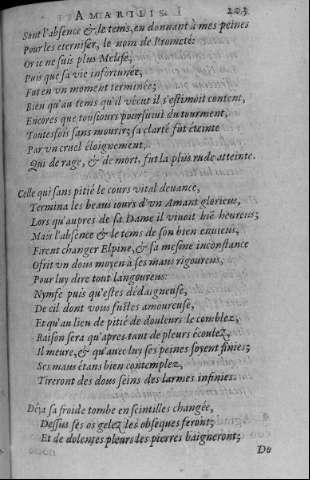 AMARILIS. 203
Sont l'absence & le tems, en donnant à mes peines
Pour les eterniser, le nom de Prometé:
Or ie ne suis plus Melise,
Puis que sa vie infortunée,
Fut en vn moment terminée;
Bien qu'au tems qu'il vécut il s'estimoit content,
Encores que tousiours poursuiui du tourment,
Toutesfois sans mourir; sa clarté fut éteinte
Par vn cruel éloignement,
Qui de rage, & de mort, fut la plus rude atteinte.
Celle qui sans pitié le cours vital deuance,
Termina les beaus iours d'vn Amant glorieus,
Lors qu'aupres de sa Dame il viuoit biē heureus;
Mais l'absence & le tems de son bien enuieus,
Firent changer Elpine, & sa mesme inconstance
Ofrit vn dous moyen à ses maus rigoureus,
Pour luy dire tout langoureus:
Nymfe puis qu'estes dédaigneuse,
De cil dont vous fustes amoureuse,
Et qu'au lieu de pitié de douleurs le comblez,
Raison sera qu'apres tant de pleurs écoulez,
Il meure, & qu'auec luy ses peines soyent finies;
Ses maus étans bien contemplez,
Tireront des dous seins des larmes infinies.
Déja sa froide tombe en scintilles changée,
Dessus ses os gelez les obseques feront;
Et de dolentes pleurs les pierres baigneront;